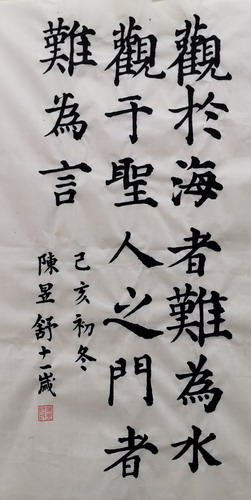 觀於海者難為水
觀于聖人之門者
難為言
己亥初冬
陳昱舒十一歲